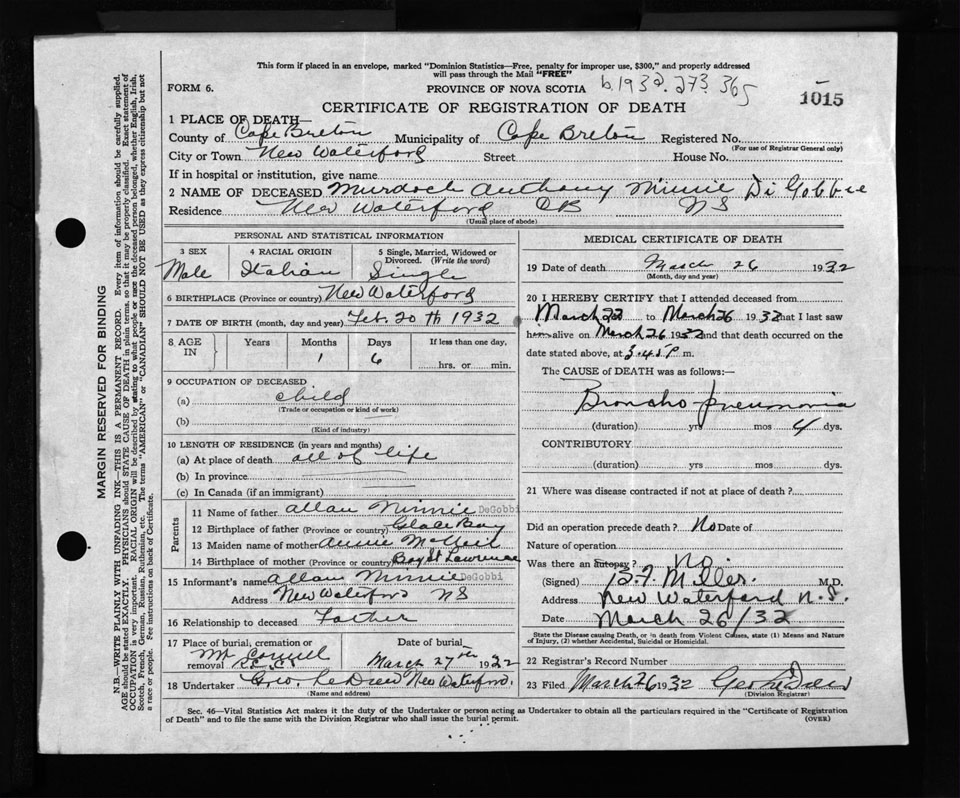 This form if placed in an envelope, marked "Dominion Statistics—Free, penalty for improper use, $300," and properly addressed
will pass through the Mail "FREE"
FORM 6.
PROVINCE OF NOVA SCOTIA
b.1932.273.365
1015
CERTIFICATE OF REGISTRATION OF DEATH
1 PLACE OF DEATH—
County of Cape Breton Municipality of Cape Breton Registered No.
(For use of Registrar General only)
City or Town New Waterford Street House No.
If in hospital or institution, give name
2 NAME OF DECEASED Murdoch Anthony Minnie Di Gobbie
Residence New Waterford CB NS
(Usual place of abode)
PERSONAL AND STATISTICAL INFORMATION
3 SEX 4 RACIAL ORIGIN 5 Single, Married, Widowed or
Divorced (Write the word)
Male Italian Single
6 BIRTHPLACE (Province or country) New Waterford
7 DATE OF BIRTH (month, day and year) Feb. 20th 1932
8 AGE IN Years Months Days If less than one day,
1 6 hrs. or min.
9 OCCUPATION OF DECEASED
(a) child
(Trade or occupation or kind of work)
(b)
(Kind of industry)
10 LENGTH OF RESIDENCE (in years and months)
(a) At place of death all of life
(b) In province
(c) In Canada (if an immigrant)
Parents
11 Name of father Allan Minnie DeGobbi
12 Birthplace of father (Province or country) Glace Bay
13 Maiden name of mother Annie McNeil
14 Birthplace of mother (Province or country) Bay St Lawrence
15 Informant's name Allan Minnie DeGobbi
Address New Waterford NS
16 Relationship to deceased Father
17 Place of burial, cremation or removal Date of burial
Mt Carmel March 27th 1932
18 Undertaker Geo. LeDrew New Waterford.
(Name and address)
MEDICAL CERTIFICATE OF DEATH
19 Date of death March 26 1932
(Month, day and year)
20 I HEREBY CERTIFY that I attended deceased from
March 22 to March 26 1932 that I last saw
him alive on March 26 1932 and that death occurred on the
date stated above, at 3.45 P m.
The CAUSE of DEATH was as follows:—
Broncho-pneumonia
(duration) yrs mos 4 dys.
CONTRIBUTORY
(duration) yrs mos dys.
21 Where was disease contracted if not at place of death?
Did an operation precede death? No Date of
Nature of operation
Was there an autopsy? No
(Signed) Miller. M.D.
Address New Waterford N.S.
Date March 26/32
State the Disease causing Death, or in death from Violent Causes, state (1) Means and Nature
of Injury, (2) whether Accidental, Suicidal or Homicidal.
22 Registrar's Record Number
23 Filed March 26 1932
(Division Registrar)
Sec. 46—Vital Statistics Act makes it the duty of the Undertaker or person acting as Undertaker to obtain all the particulars required in the "Certificate of Registration
of Death" and to file the same with the Division Registrar who shall issue the burial permit.
(OVER)
MARGIN RESERVED FOR BINDING
N.B.—WRITE PLAINLY WITH UNFADING INK—THIS IS A PERMANENT RECORD. Every item of information should be carefully supplied.
AGE should be stated EXACTLY. PHYSICIANS should STATE CAUSE OF DEATH in plain terms, so that it may be properly classified. Exact statement of
OCCUPATION is very important. RACIAL ORIGIN will be described by stating to what people or race the deceased person belonged, whether English, Irish,
Scotch, French, German, Russian, Ruthenian, etc. The terms "AMERICAN" or "CANADIAN" SHOULD NOT BE USED as they express citizenship but not
a race or people. See instructions on back of Certificate.